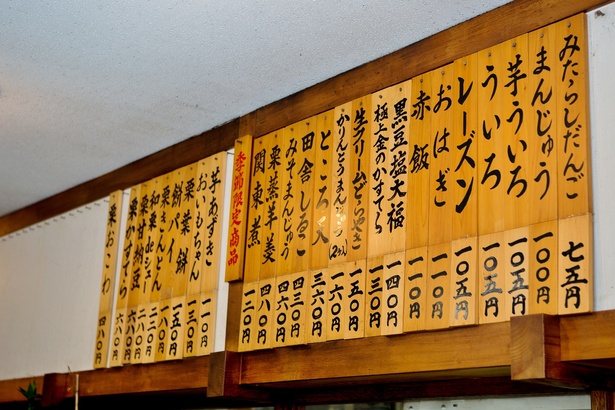 みたらしだんご 七五円
まんじゅう 一〇〇円
芋ういろ 一〇〇円
ういろ 一〇五円
レーズン 一〇五円
おはぎ 一〇〇円
赤飯
黒豆塩大福 一四〇円
極上金のかすてら 一三〇円
生クリームどらやき 一五〇円
かりんとうまんじゅう(2ヶ入) 一六〇円
ところ天 三六〇円
田舎しるこ 四三〇円
みそまんじゅう
栗蒸羊羹 四八〇円
関東煮 一二〇円
季節限定商品
芋あずき 一一〇円
おいもちゃん 一三〇円
栗葉餅 一五〇円
餅パイ 一八〇円
栗きんとん
和栗deシュー
栗甘納豆 六八〇円
栗かすてら 六八〇円
栗おこわ 四八〇円